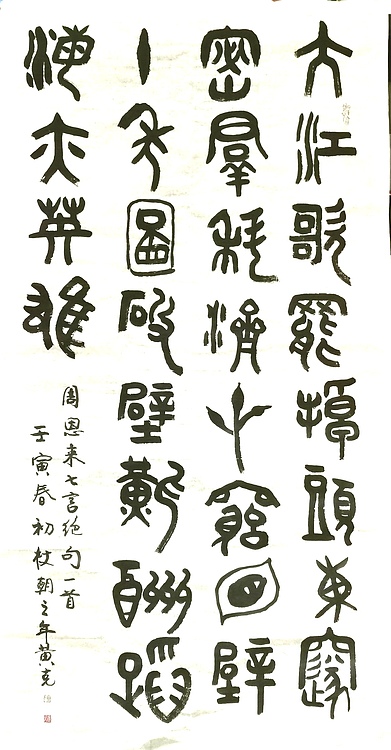 大江歌罷掉頭東邃
密羣科濟世窮面壁
十年圖破壁難酬蹈
海亦英雄
周恩来七言絶句一首
壬寅春初杖朝之年黃克